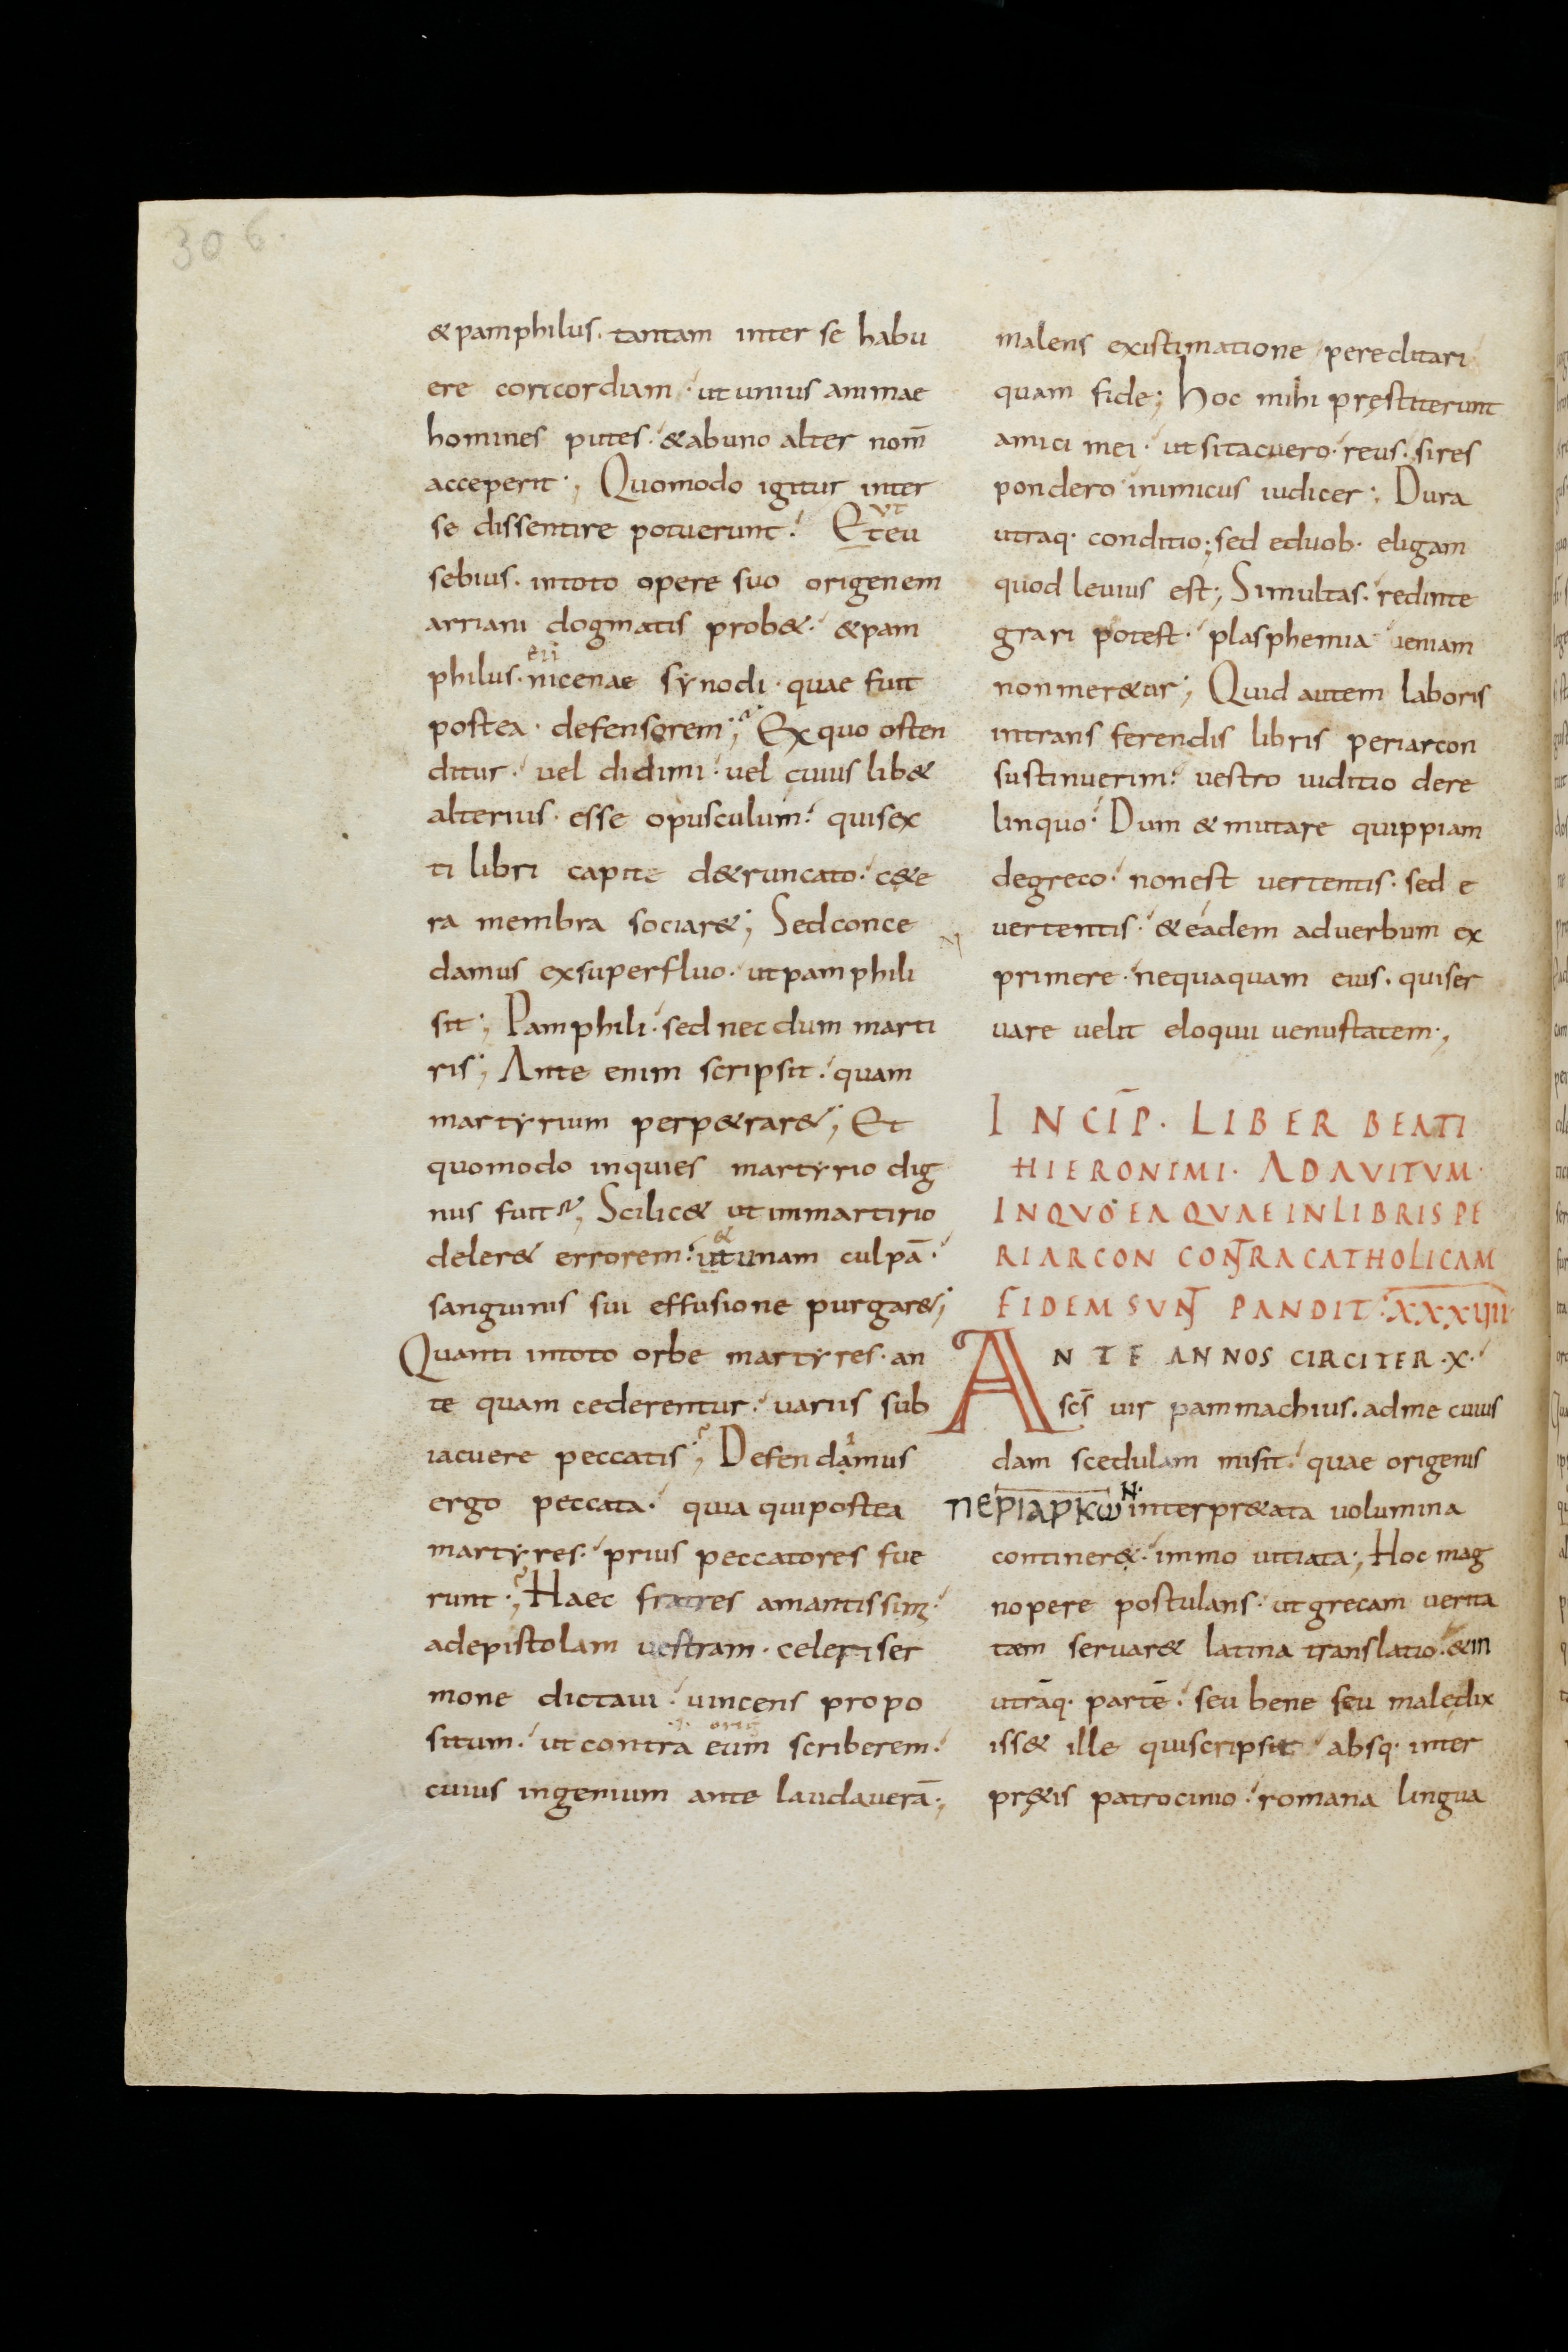 306.
&pamphilus. tantam inter se habu
ere concordiam · ut unius animae
homines putes · &abuno alter nom̄
acceperit ·; Quomodo igitur inter
se dissentire potuerunt? Et ut eu
sebius · intoto opere suo origenem
arriani dogmatis prob& · &pam
philus · nicenae synodi · quae fuit
postea · defensorem ·; Ex quo osten
ditur · vel didimi · vel cuius lib&
alterius · esse opusculum · quisex
ti libri capite d&runcato · c&e
ra membra sociar&; Sedconce
damus exsuperfluo · utpamphili
sit ·; Pamphili · sed nec dum marti
ris; Ante enim scripsit · quam
martyrium perp&rar&; Et
quomodo inquies martyrio dig
nus fuit; Scilic& ut inmartirio
deler& errorem · ut & unam culpā ·
sanguinis sui effusione purgar&;
Quanti intoto orbe martyres · an
te quam cederentur · variis sub
iacuere peccatis ·; Defendamus
ergo peccata · quia quipostea
martyres · prius peccatores fue
runt ·; Haec fratres amantissimi ·
adepistolam vestram · celeri ser
mone dictavi · vincens propo
situm · ut contra eum orig scriberem ·
cuius ingenium ante laudaverā ·;
malens existimatione pereclitari
quam fide; Hoc mihi pręstiterunt
amici mei · ut sitacuero · reus · sires
pondero inimicus iudicer ·; Dura
utraq· conditio ·; sed eduob· eligam
quod levius est ·; Simultas · redinte
grari potest · plasphemia veniam
nonmer&ur ·; Quid autem laboris
intrans ferendis libris periarcon
sustinuerim · vestro iuditio dere
linquo · Dum &mutare quippiam
degreco · nonest vertentis · sed e
vertentis · &eadem adverbum ex
primere · nequaquam eius · quiser
vare velit eloquii venustatem ·;
INCIP̄ · LIBER BEATI
HIERONIMI · ADAVITVM ·
INQVO EA QVAE INLIBRIS PE
RIARCON CONTRA CATHOLICAM
FIDEM SVNT PANDIT · XXXIIII ·
ANTE ANNOS CIRCITER · X ·
scs̄ vir pammachius · adme cuius
dam scedulam misit · quae origenis
ΠΕΡΙΑΡΚΩΝ · interpr&ata volumina
continer& · immo vitiata ·; Hoc mag
nopere postulans · ut grecam verita
tem servar& latina translatio · &in
utrāq· partē · seu bene seu maledix
iss& ille quiscripsit · absq· inter
pr&is patrocinio · romana lingua